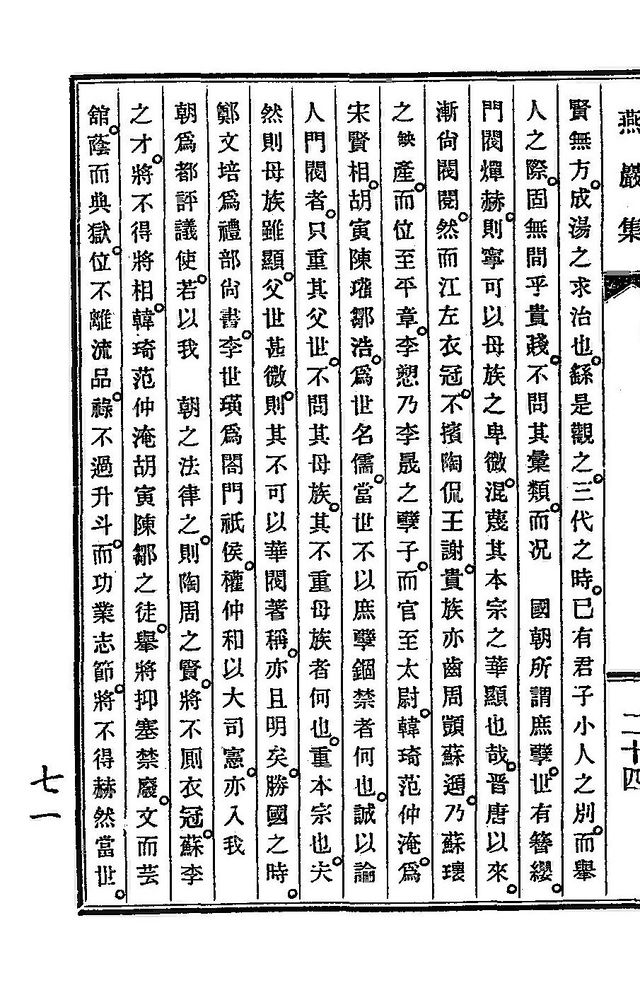 燕巖集
二十四
賢無方。成湯之求治也。繇是觀之。三代之時。已有君子小人之別。而舉
人之際。固無間乎貴賤。不問其彙類。而况　國朝所謂庶孼。世有簪纓。
門閥燀赫。則寧可以母族之卑微。混蔑其本宗之華顯也哉。晋唐以來。
漸尙閥閱。然而江左衣冠。不擯陶侃。王謝貴族。亦齒周顗。蘇頲乃蘇瓌
之缺產。而位至平章。李愬乃李晟之孼子。而官至太尉。韓琦范仲淹。爲
宋賢相。胡寅陳瓘鄒浩。爲世名儒。當世不以庶孼錮禁者何也。誠以論
人門閥者。只重其父世。不問其母族。其不重母族者何也。重本宗也。夫
然則母族雖顯。父世甚微。則其不可以華閥著稱。亦且明矣。勝國之時。
鄭文培爲禮部尙書。李世璜爲閤門祗侯。權仲和以大司憲。亦入我
朝爲都評議使。若以我　朝之法律之。則陶周之賢。將不厠衣冠。蘇李
之才。將不得將相。韓琦范仲淹胡寅陳鄒之徒。舉將抑塞禁廢。文而芸
舘蔭而典獄。位不離流品。祿不過升斗。而功業志節。將不得赫然當世。
七一